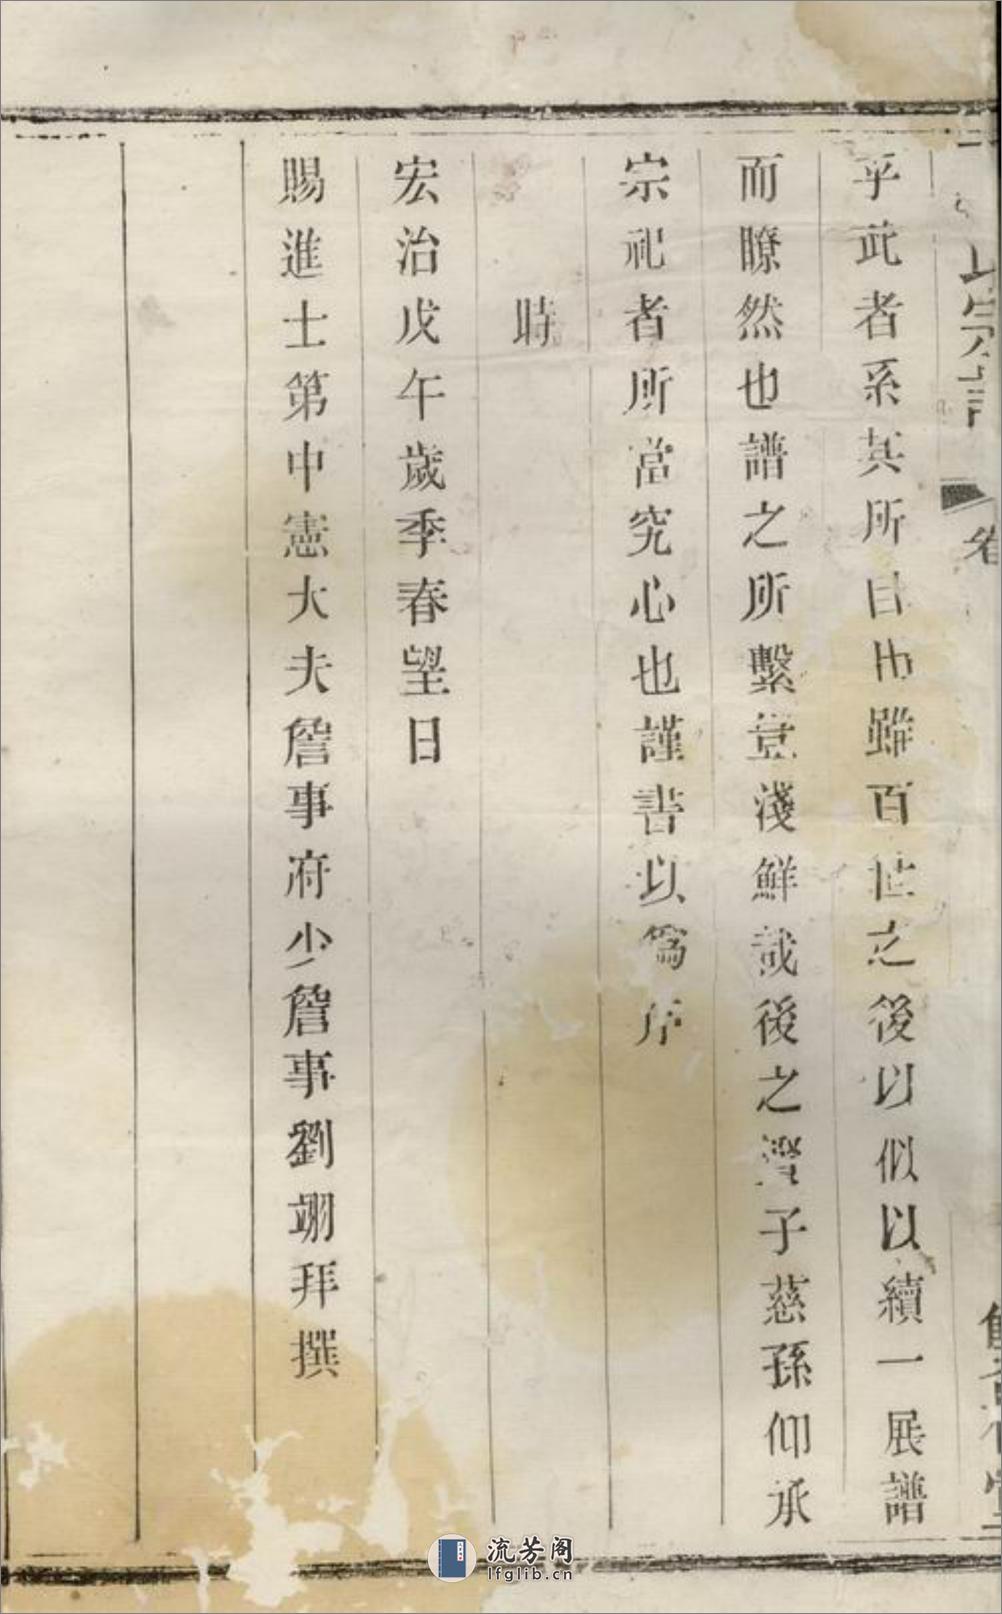 乎武者系其所自出雖百世之後以似以續一展譜
而瞭然也譜之所繫豈淺鮮哉後之賢子慈孫仰承
宗祀者所當究心也謹書以為序
時
宏治戊午歲季春望日
賜進士第中憲大夫詹事府少詹事劉翊拜撰
流芳阁
lfglib.cn